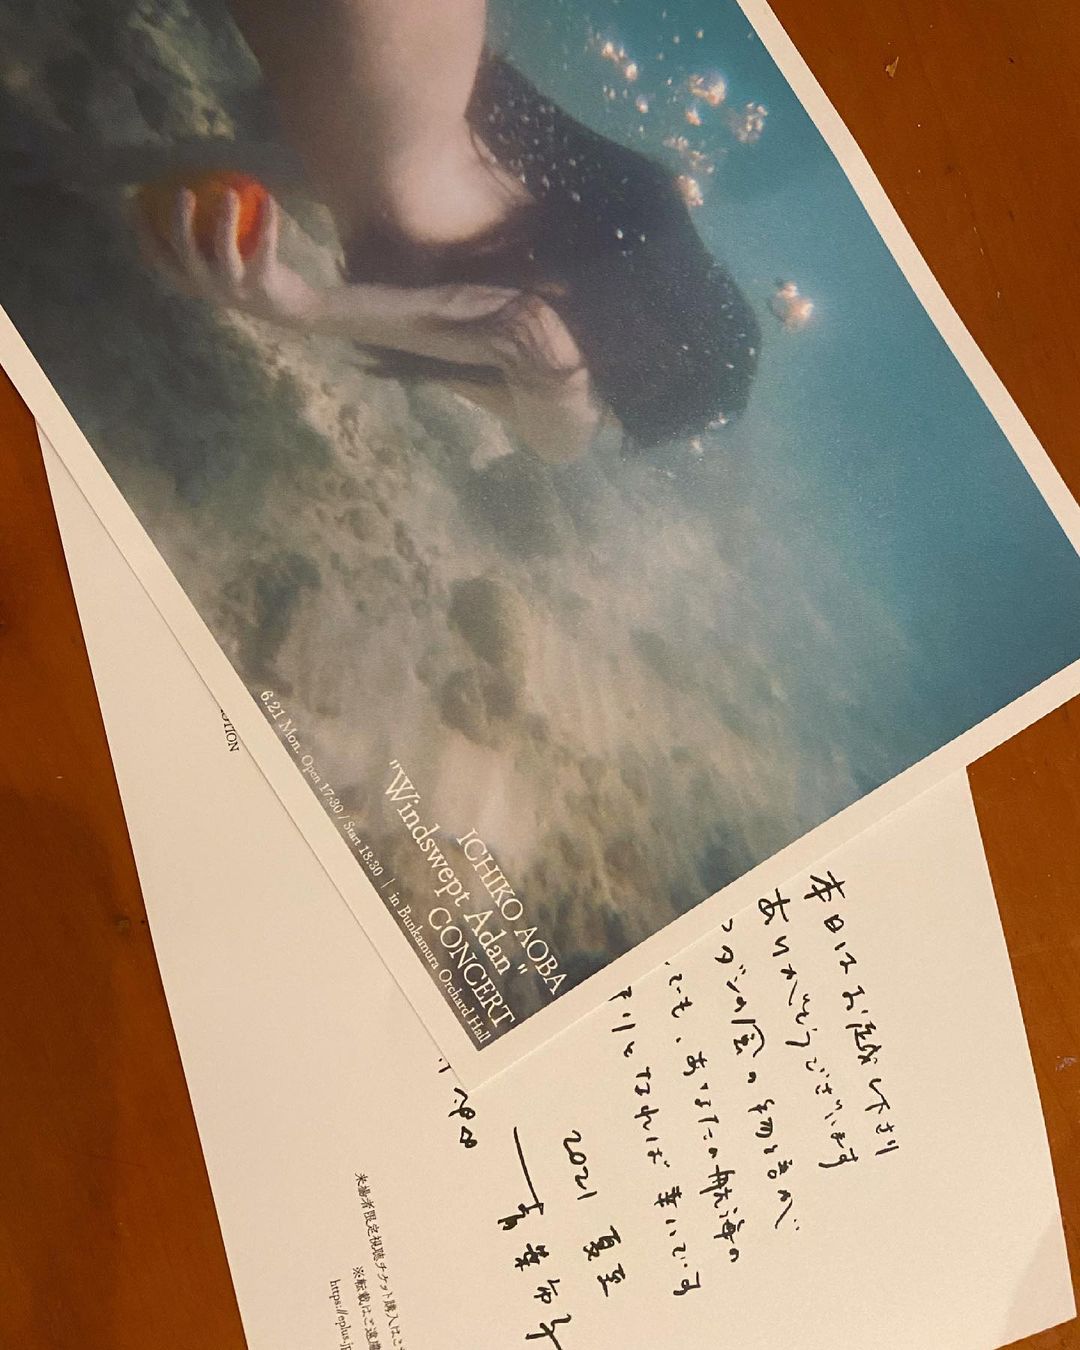 ICHIKO AOBA
"Windswept Adan"
CONCERT
6.21 Mon. Open 17:30 / Start 18:30 | in Bunkamura Orchard Hall
本日はお越し下さり
ありがとうございます
アダンの風の物語が
でも、あなたの航海の
となれば幸いです
2021 夏至
青葉市子
来場者限定視聴チケット購入はこ
※転載はご遠慮
https://eplus.jp